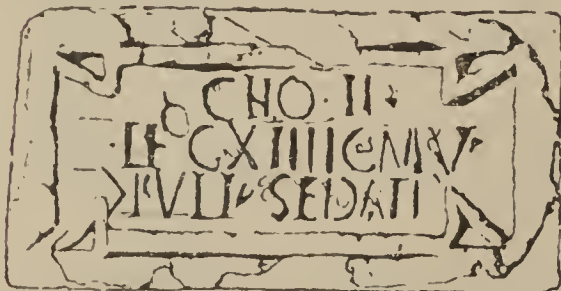 CHO·II·
LEGXIIIIGMV
IVLI SEDATI